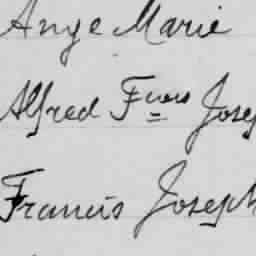 Ange Marie
Alfred Fcois Josep
Francis Joseph